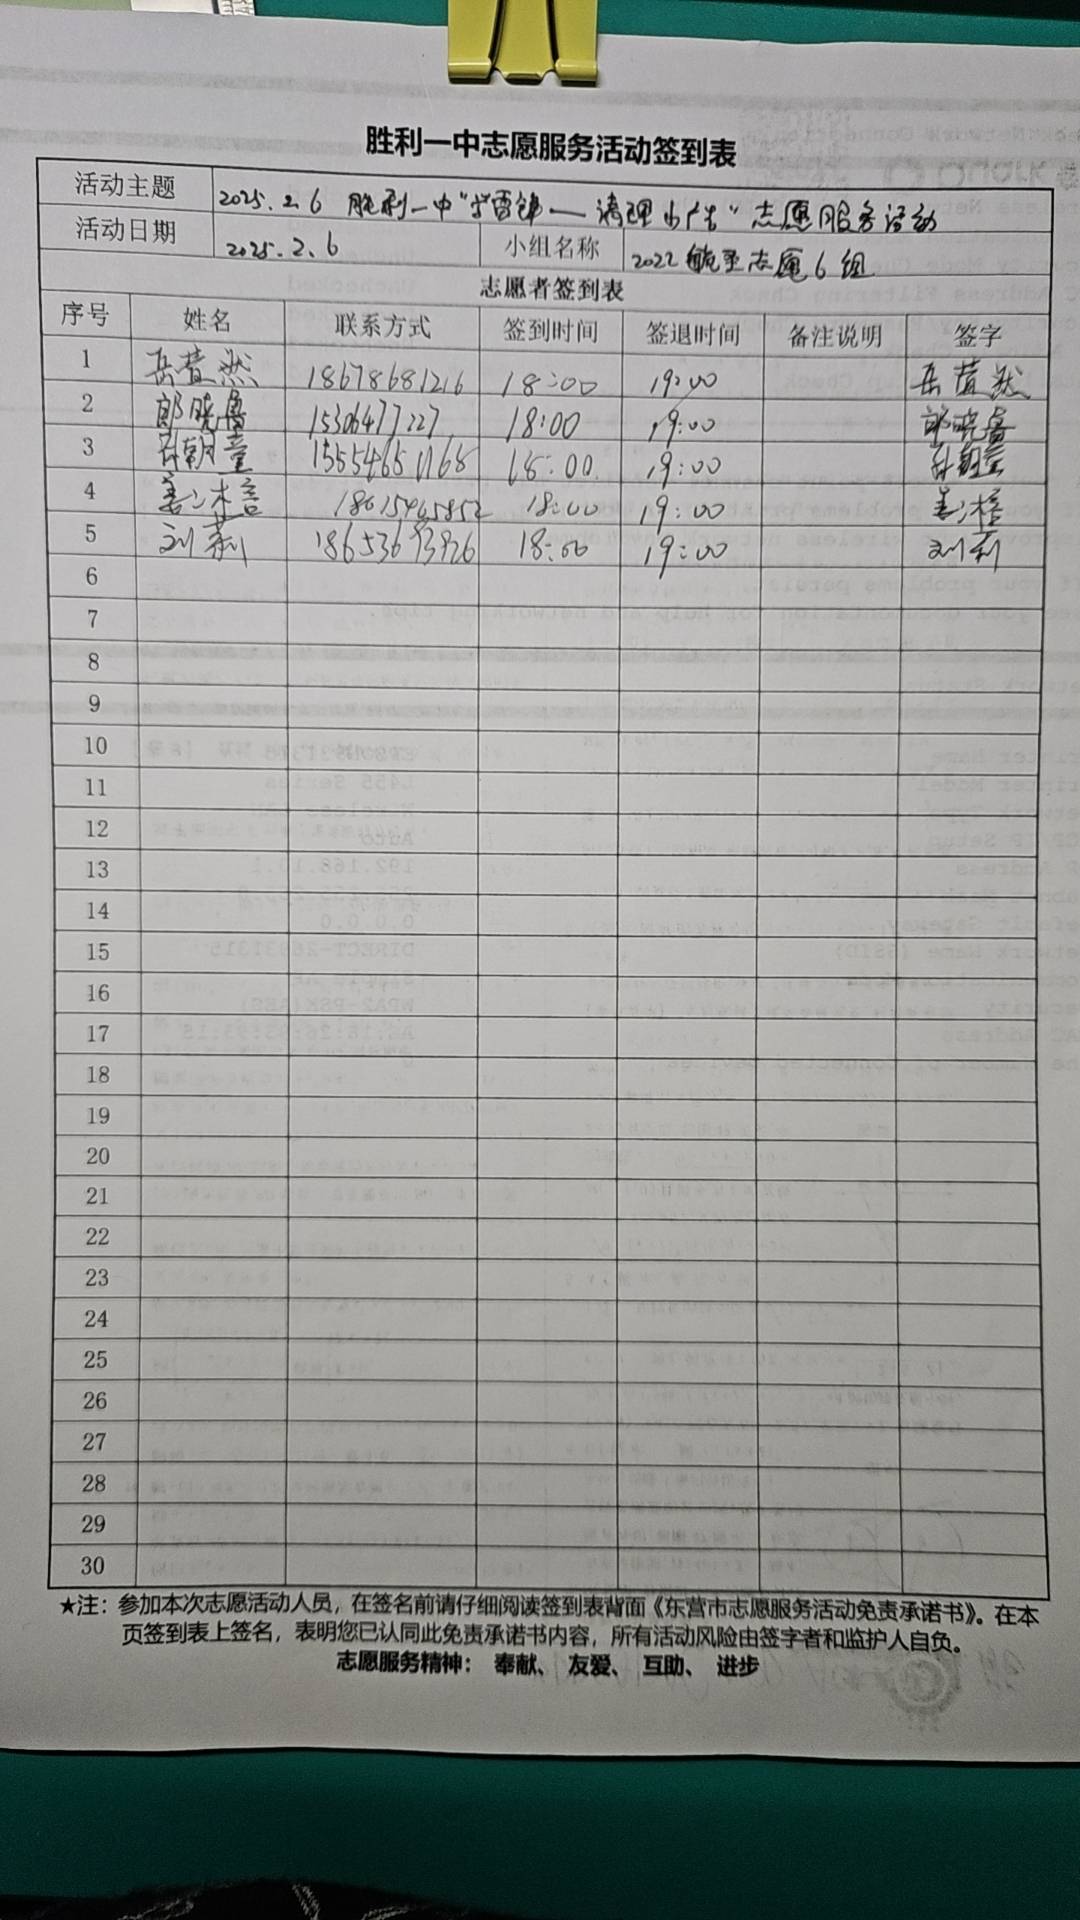 胜利一中志愿服务活动签到表
活动主题 2025.2.6 胜利一中“学雷锋——清理小广告”志愿服务活动
活动日期 2025.2.6 小组名称 2022 志愿6组
志愿者签到表
序号 姓名 联系方式 签到时间 签退时间 备注说明 签字
1 岳萱然 18678681216 18:00 19:00 岳萱然
2 郎晓 15306477227 18:00 19:00 郎晓
3 朝童 15554651168 18:00 19:00 朝童
4 姜 18615465852 18:00 19:00 姜
5 刘莉 18653693926 18:00 19:00 刘莉
6
7
8
9
10
11
12
13
14
15
16
17
18
19
20
21
22
23
24
25
26
27
28
29
30
★注：参加本次志愿活动人员，在签名前请仔细阅读签到表背面《东营市志愿服务活动免责承诺书》。在本
页签到表上签名，表明您已认同此免责承诺书内容，所有活动风险由签字者和监护人自负。
志愿服务精神： 奉献、 友爱、 互助、 进步